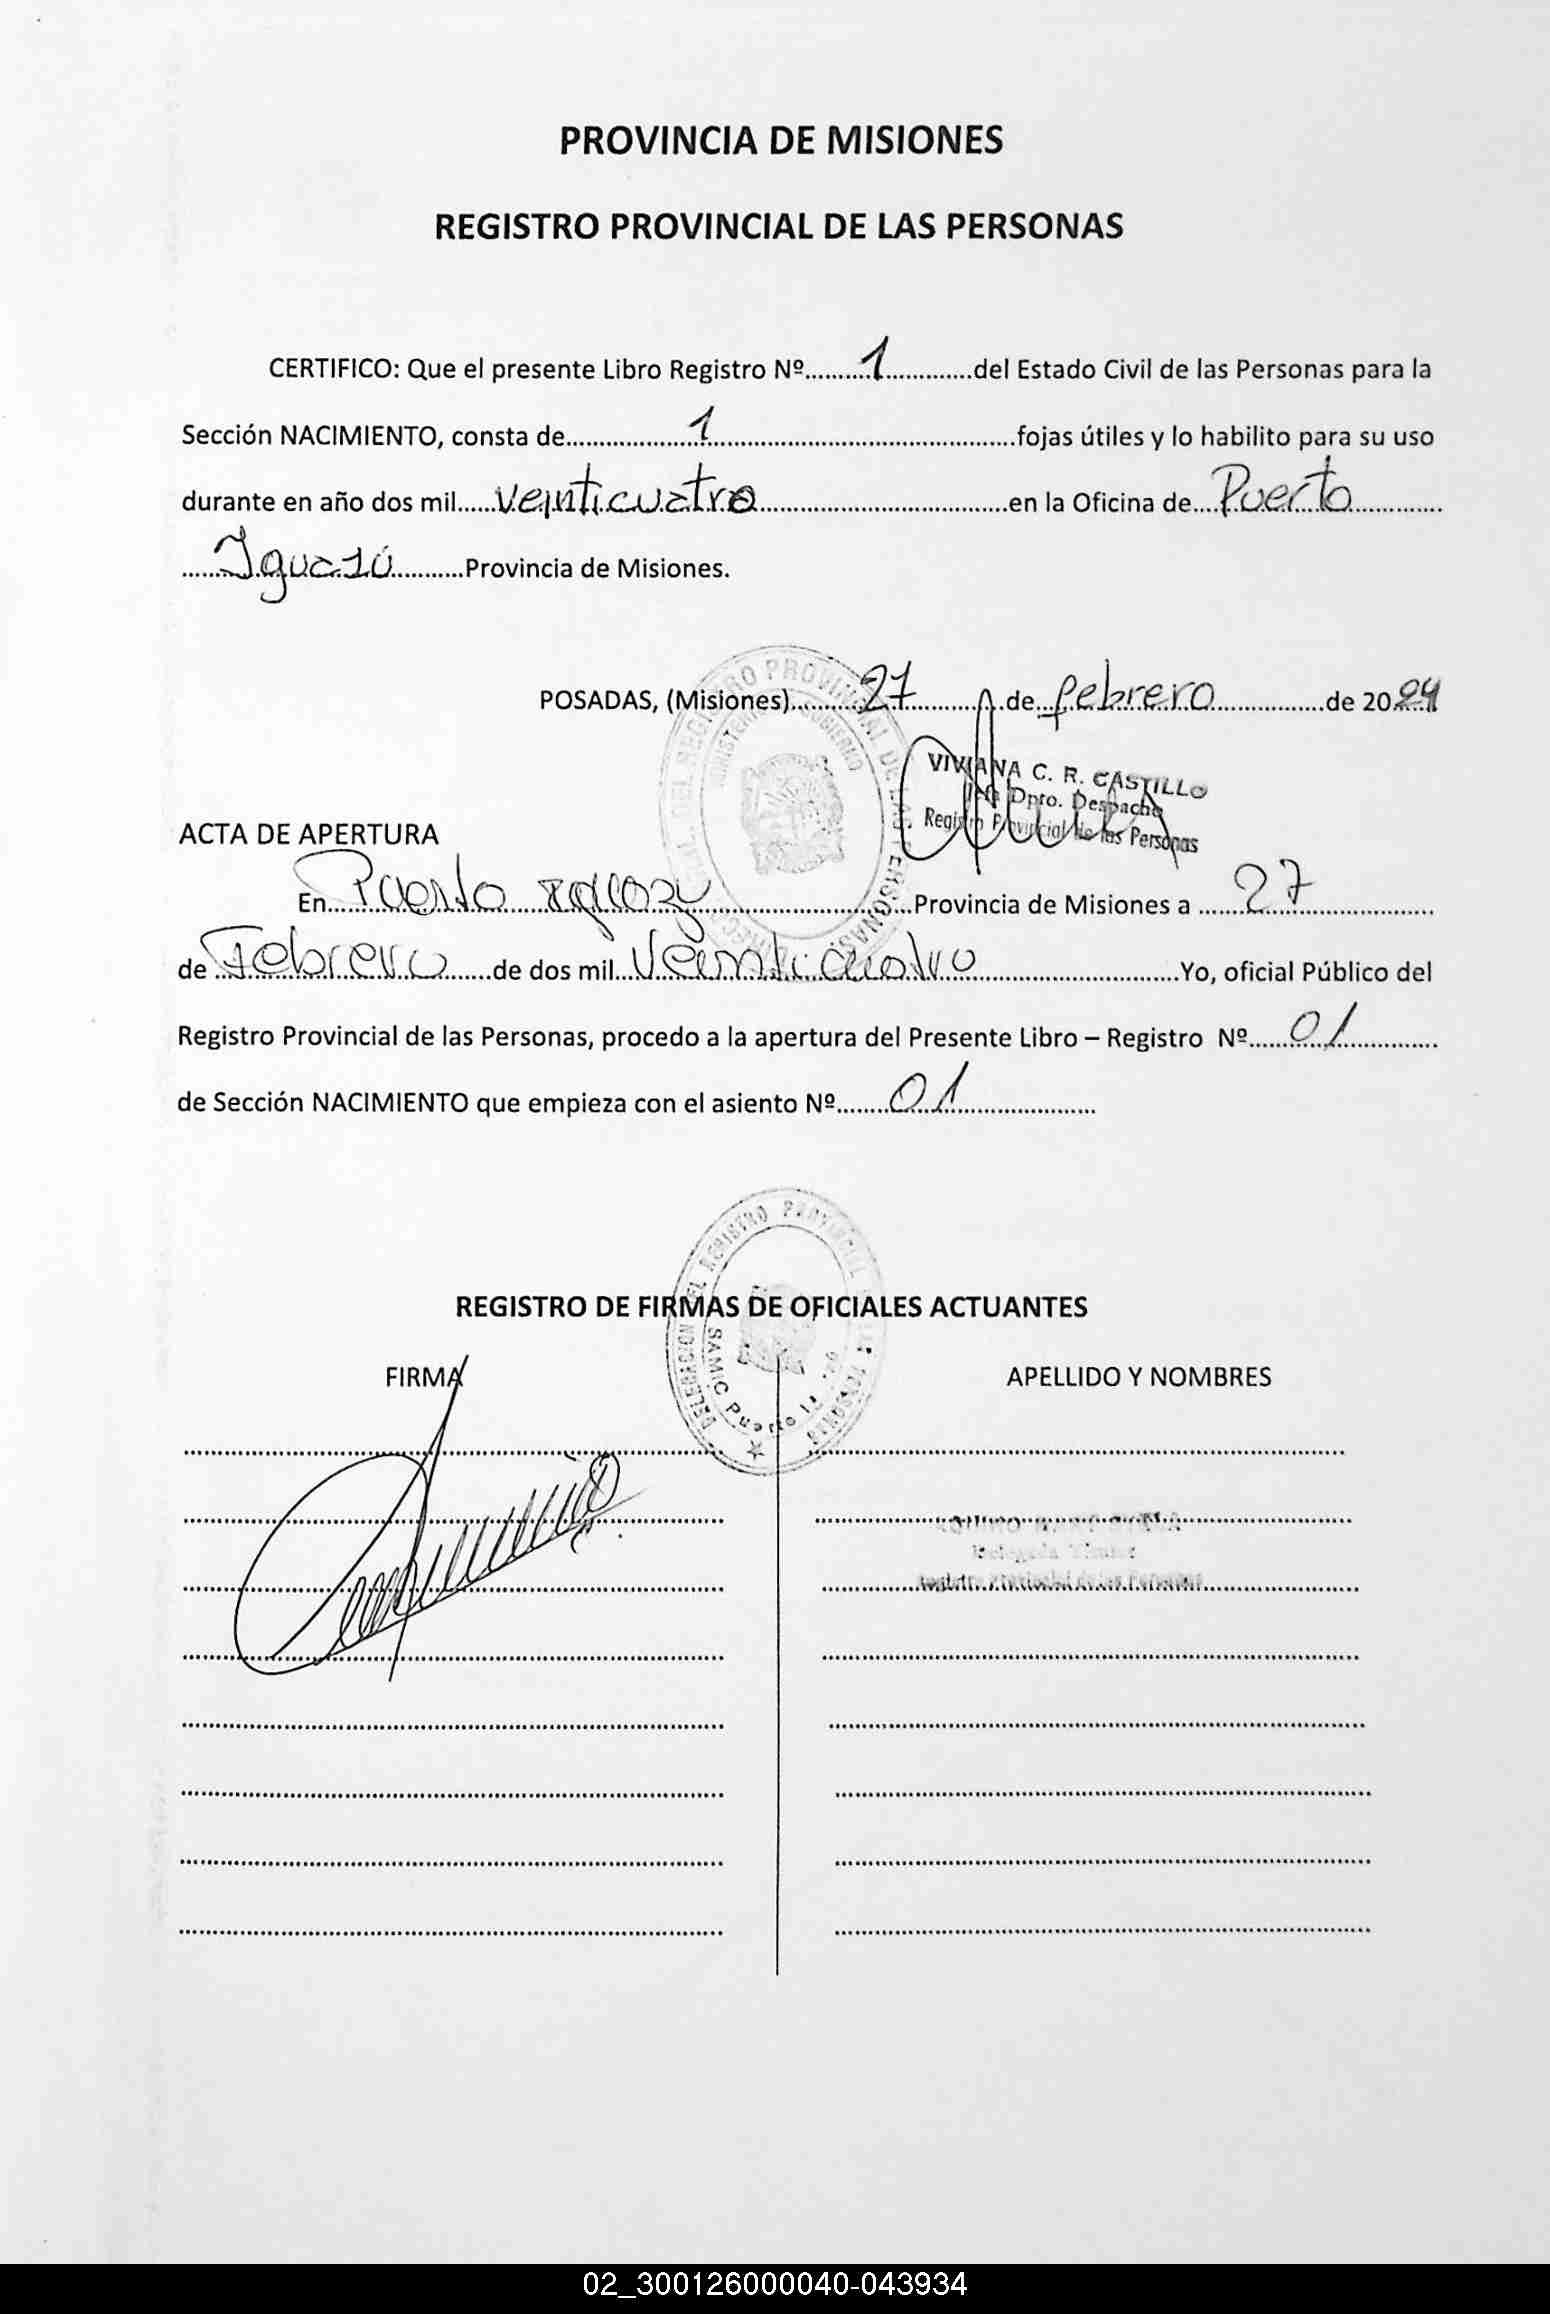 PROVINCIA DE MISIONES
REGISTRO PROVINCIAL DE LAS PERSONAS
CERTIFICO: Que el presente Libro Registro Nº..........1.............del Estado Civil de las Personas para la
Sección NACIMIENTO, consta de....................1..............................................fojas útiles y lo habilito para su uso
durante en año dos mil......veinticuatro......................................en la Oficina de....Puerto..............
......Iguazú...........Provincia de Misiones.
POSADAS, (Misiones)..........27.............de...febrero.................de 2024
VIVIANA C. R. CASTILLO
Jefa Dpto. Despacho
Registro Provincial de las Personas
ACTA DE APERTURA
En....Puerto Iguazu..............................Provincia de Misiones a .......27...................
de..Febrero.......de dos mil...Veinticuatro..............................Yo, oficial Público del
Registro Provincial de las Personas, procedo a la apertura del Presente Libro – Registro Nº......01..............
de Sección NACIMIENTO que empieza con el asiento Nº........01....................
DELEGACION DEL REGISTRO PROVINCIAL DE LAS PERSONAS
SAMIC Puerto
REGISTRO DE FIRMAS DE OFICIALES ACTUANTES
FIRMA APELLIDO Y NOMBRES
Delegada Titular
Registro Provincial de las Personas
02_300126000040-043934